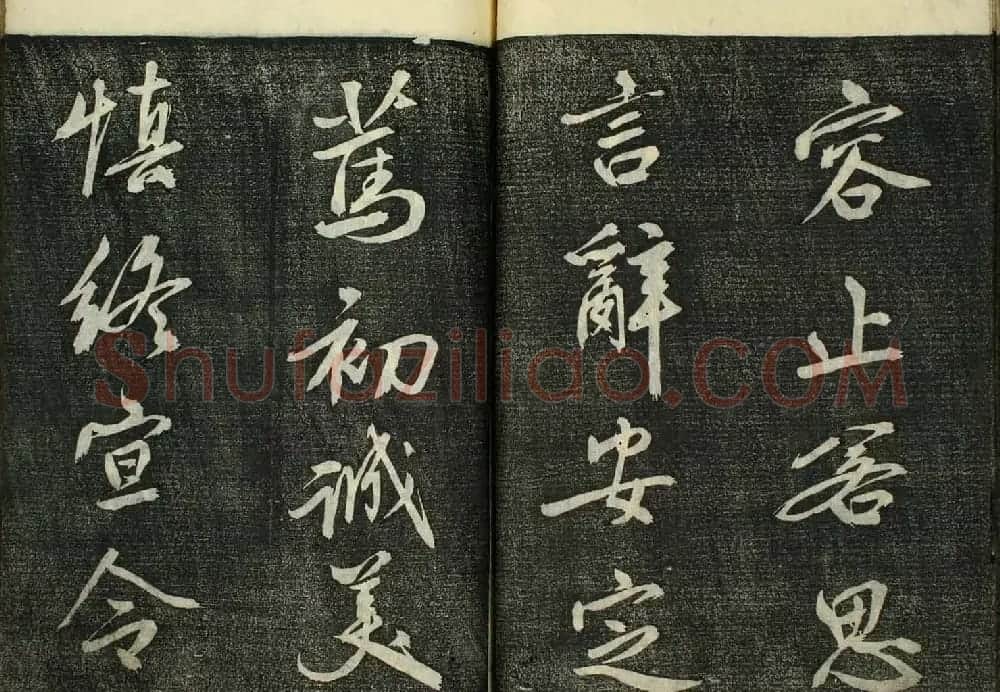 容止若思
言辭安定
篤初誠美
慎終宜令
Shufaziliao.COM